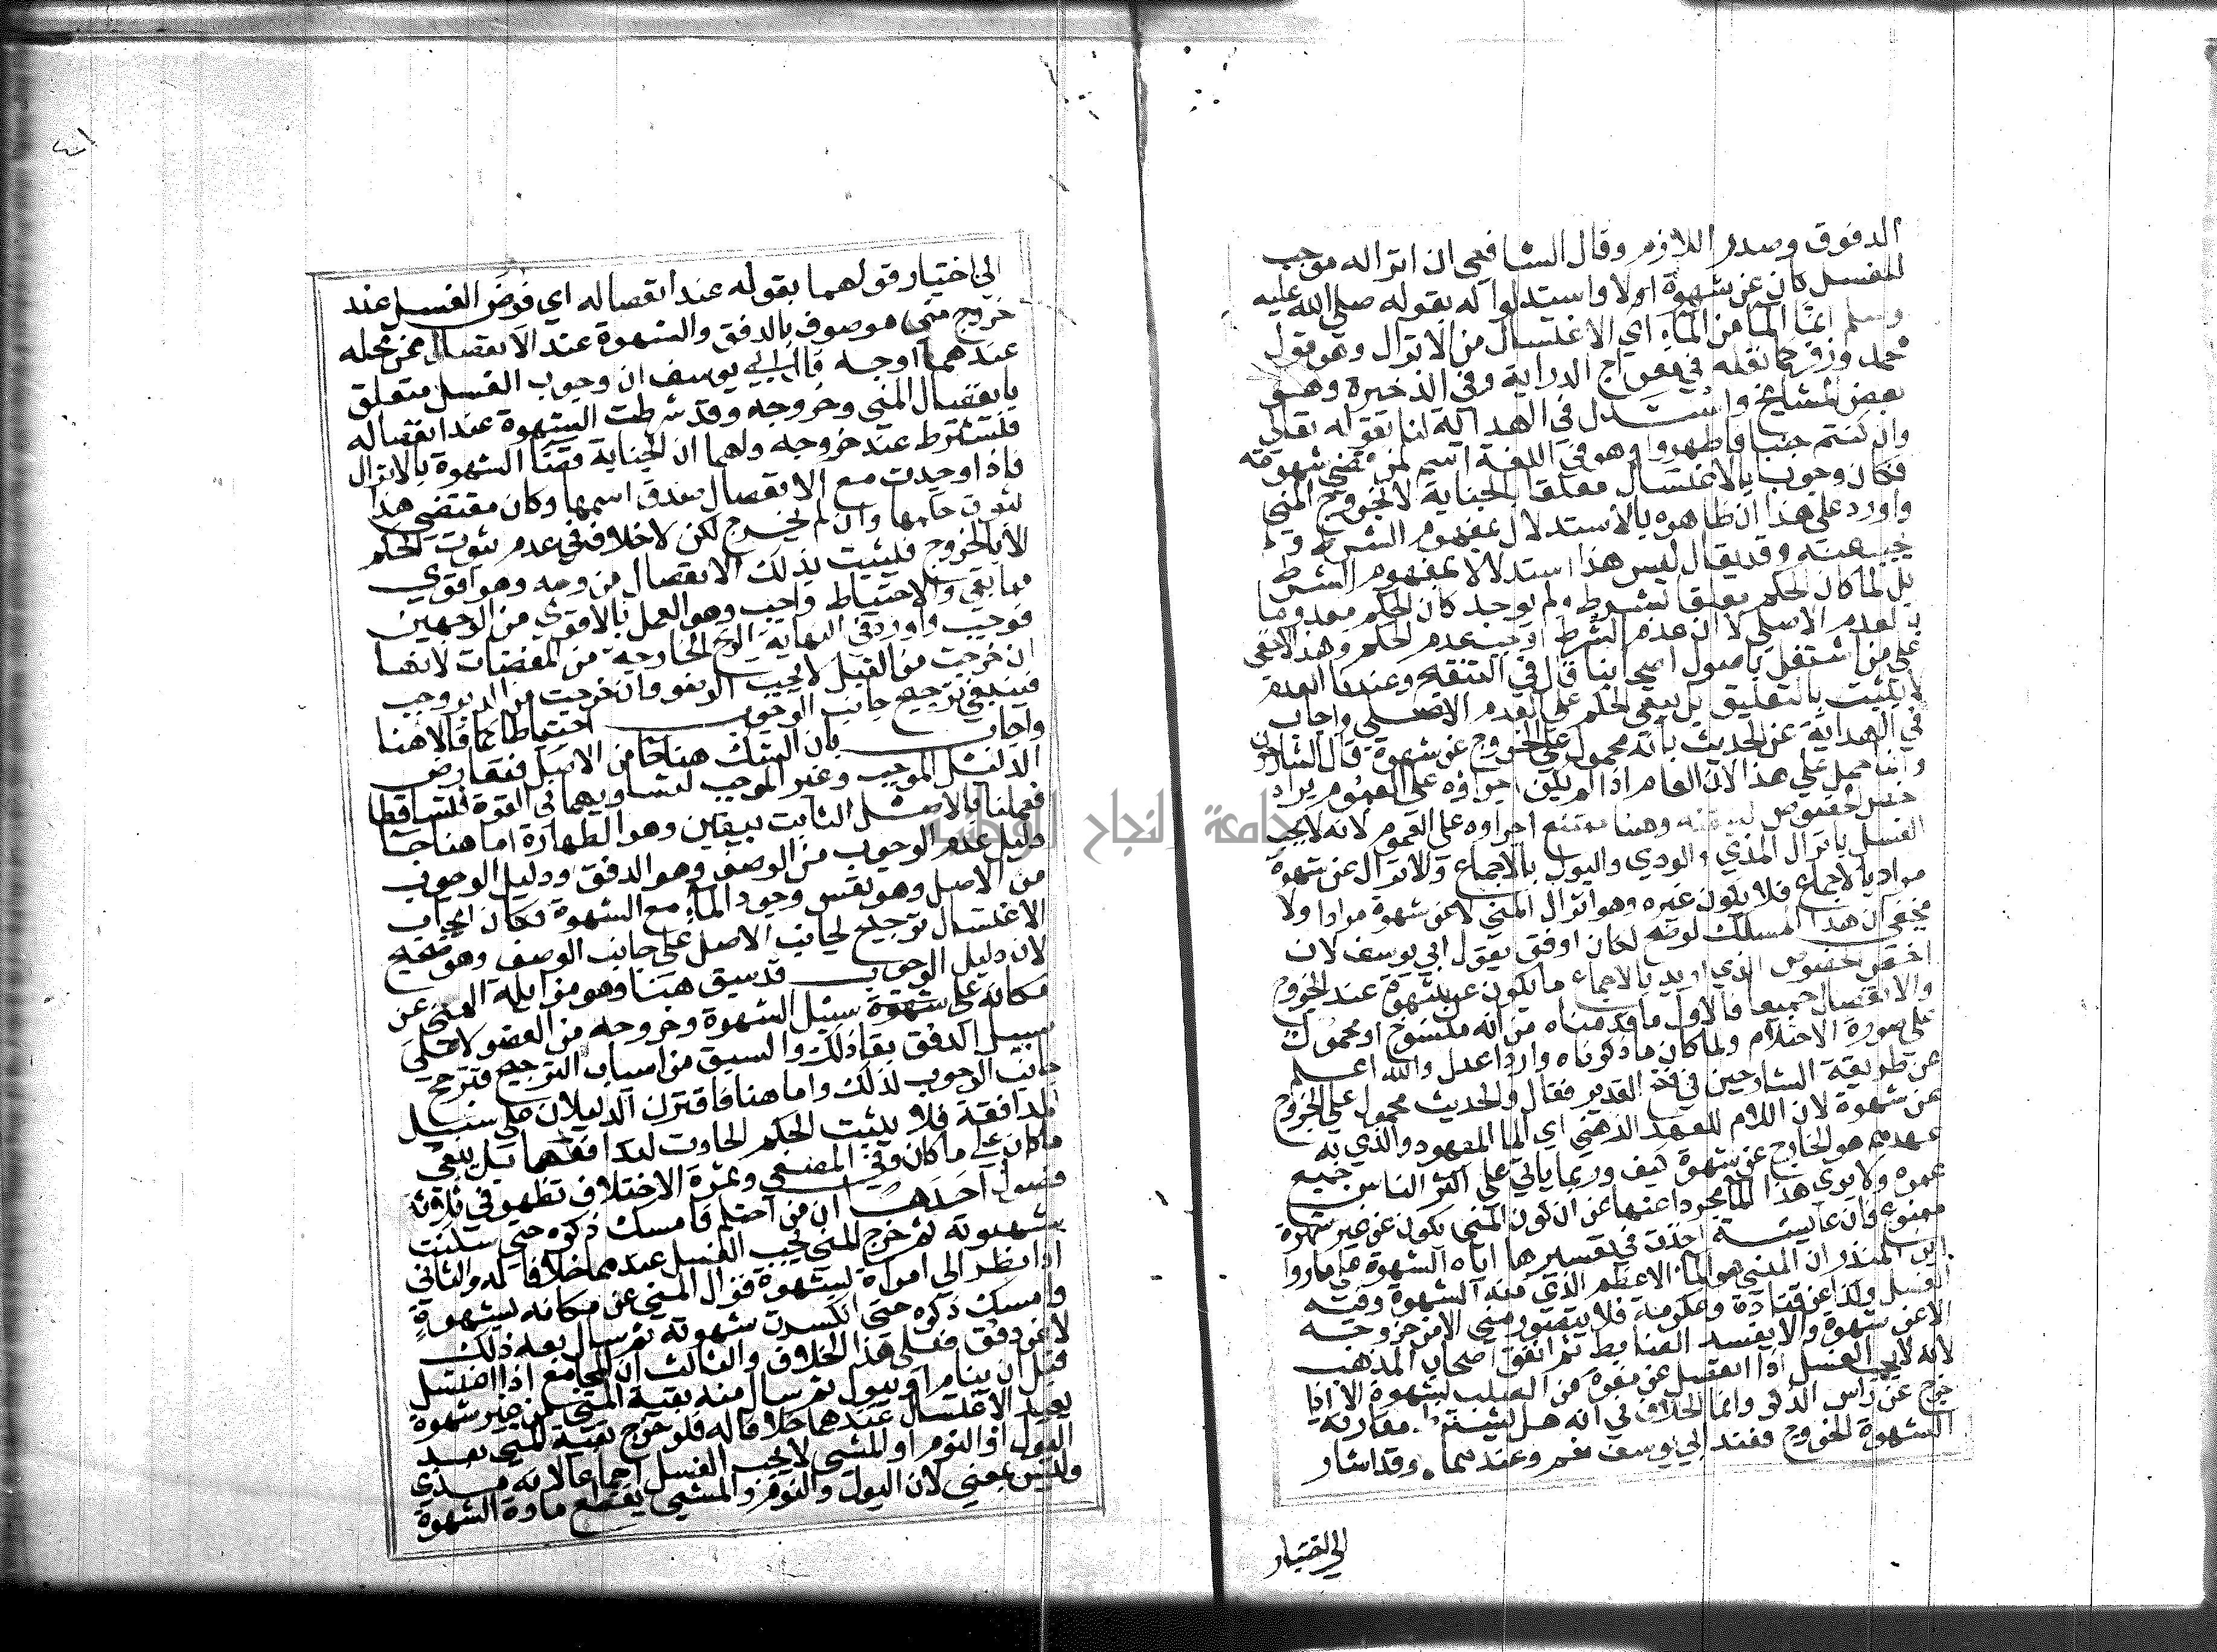 الدفوق وصدر اللازم وقال الشافعي ان انزاله موجب
للغسل كان عن شهوة اولا واستدلوا له بقوله صلى الله عليه
وسلم انما الماء من الماء اي الاغتسال من الانزال وهو قول
محمد وزفر كما نقله في معراج الدراية وفي الذخيرة وهو
بعض المشايخ واستدل في الهداية لنا بقوله تعالى
وان كنتم جنبا فاطهروا وهو في اللغة اسم لمن قضى شهوته
فكان وجوب الاغتسال معلقا بالجناية لا بخروج المني
واورد على هذا ان ظاهره الاستدلال بمفهوم الشرط
عنه وقد يقال ليس هذا استدلالا بمفهوم الشرط
بل لما كان الحكم معلقا بشرط ولم يوجد كان الحكم معدوما
بالعدم الاصلي لا ان عدم الشرط اوجب عدم الحكم وهذا لا يخفى
على من اشتغل باصول اصحابنا قال في التنقيح وعندنا العدم
لا يثبت بالتعليق بل يبقى الحكم على العدم الاصلي واجاب
في الهداية عن الحديث بانه محمول على الخروج عن شهوة قال الشارحون
وانما حمل على هذا لان العام اذا لم يكن اجراؤه على العموم يراد
اخص الخصوص وهنا ممتنع اجراوه على العموم لانه لا يجب
الغسل بانزال المذي والودي والبول بالاجماع والانزال عن شهوة
مراد بالاجماع فلا يكون غيره وهو انزال المني لا عن شهوة مرادا ولا
يخفى ان هذا المسلك لوصح لكان اوفق بقول ابي يوسف لان
اخص الخصوص الذي اريد بالاجماع ما يكون عن شهوة عند الخروج
والانفصال جميعا فالاول ما قدمناه من انه منسوخ او محمول
على صورة الاحتلام ولما كان ما ذكروناه واردا عدل والله اعلم
عن طريقة الشارحين في فتح القدير فقال والحديث محمول على الخروج
عن شهوة لان اللام للعهد الذهني اي الماء المعهود والذي به
عهدهم هو الخارج عن شهوة كيف وربما ياتي على اكثر الناس جميع
عمره ولا يرى هذا الماء مجردا عنها على ان كون المني يكون عن غير شهوة
ممنوع فان عايشة اخذت في تفسيرها اياه الشهوة على ما روا
ابن المنذر ان المني هو الماء الاعظم الذي منه الشهوة وفيه
الغسل وكذا عن قتادة وعكرمة فلا يتصور مني الا من خروجه
الا عن شهوة والا يفسد الضابط ثم اتفق اصحاب المذهب
لانه لا يجب الغسل اذا انفصل عن مقره من الصلب بشهوة الا اذا
خرج عن راس الذكر وانما الخلاف في انه هل يشترط مقارنة
الشهوة للخروج فعند ابي يوسف نعم وعندهما وقد اشار
الى اختيار
الى اختيار قولهما بقوله عند انفصاله اي فرض الغسل عند
خروج مني موصوف بالدفق والشهوة عند الانفصال عن محله
عندهما اوجه قال ابي يوسف ان وجوب الغسل متعلق
بانفصال المني وخروجه وقد شرطت الشهوة عند انفصاله
فلتشترط عند خروجه ولهما ان الجناية قضا الشهوة بالانزال
فاذا وجدت مع الانفصال صدق اسمها وكان مقتضى هذا
ثبوت حكمها وان لم يخرج لكن لا خلاف في عدم ثبوت الحكم
الا بالخروج فليثبت بذلك الانفصال من وجه وهو اقوى
مما بقي والاحتياط واجب وهو العمل بالاقوى من الوجهين
فوجب واورد في النهاية الريح الخارجة من المفضات لانها
ان خرجت من القبل لا يجب الوضو وان خرجت من الدبر وجب
فينبغي ترجيح جانب الوجوب احتياطا كما قالا هنا
واجاب بان الشك هناك جا من الاصل فتعارض
الدليل الموجب وغير الموجب لتساويهما في القوة فتساقطا
فعملنا بالاصل الثابت بيقين وهو الطهارة اما هنا جا
دليل عدم الوجوب من الوصف وهو الدفق ودليل الوجوب
من الاصل وهو نفس وجود الماء مع الشهوة فكان ايجاب
الاغتسال ترجيح لجانب الاصل على جانب الوصف وهو صحيح
لان دليل الوجوب قد سبق هنا وهو مزايلة المني عن
مكانه على شهوة سبيل الشهوة وخروجه من العضو لا على
سبيل الدفق بعد ذلك والسبق من اسباب الترجيح فترجح
جانب الوجوب لذلك واما هنا فاقترن الدليلان على سبيل
المدافعة فلا يثبت الحكم الحادث لتدافعهما بل يبقى
ما كان على ما كان وفي المصفى وثمرة الاختلاف تظهر في ثلاثة
فصول احدها ان من احتلم فامسك ذكره حتى سكنت
شهوته ثم خرج المني يجب الغسل عندهما خلافا له والثاني
اذا نظر الى امراة بشهوة فزال المني عن مكانه بشهوة
وامسك ذكره حتى انكسرت شهوته ثم سال بعد ذلك
لا عن دفق فعلى هذا الخلاف والثالث ان المجامع اذا اغتسل
قبل ان ينام او يبول ثم سال منه بقية المني من غير شهوة
يعيد الاغتسال عندهما خلافا له فلو خرج بقية المني بعد
البول او النوم او المشي لا يجب الغسل اجماعا لانه مذي
وليس بمني لان البول والنوم والمشي يقطع مادة الشهوة
جامعة النجاح الوطنية